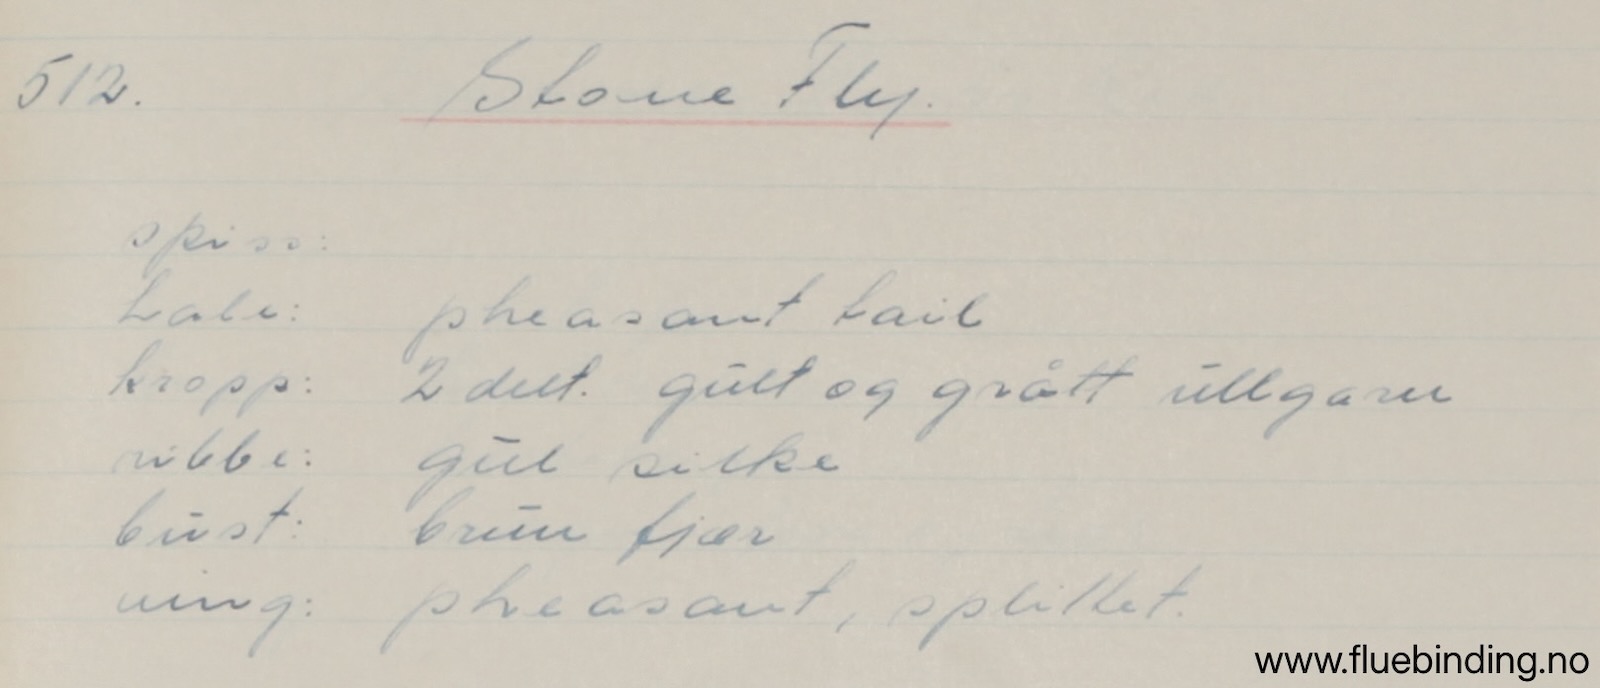 512. Stone Fly.
spiss:
hale: pheasant tail
kropp: 2 delt. gult og grått ullgarn
ribbe: gul silke
bust: brun fjær
ving: pheasant, splittet.
www.fluebinding.no